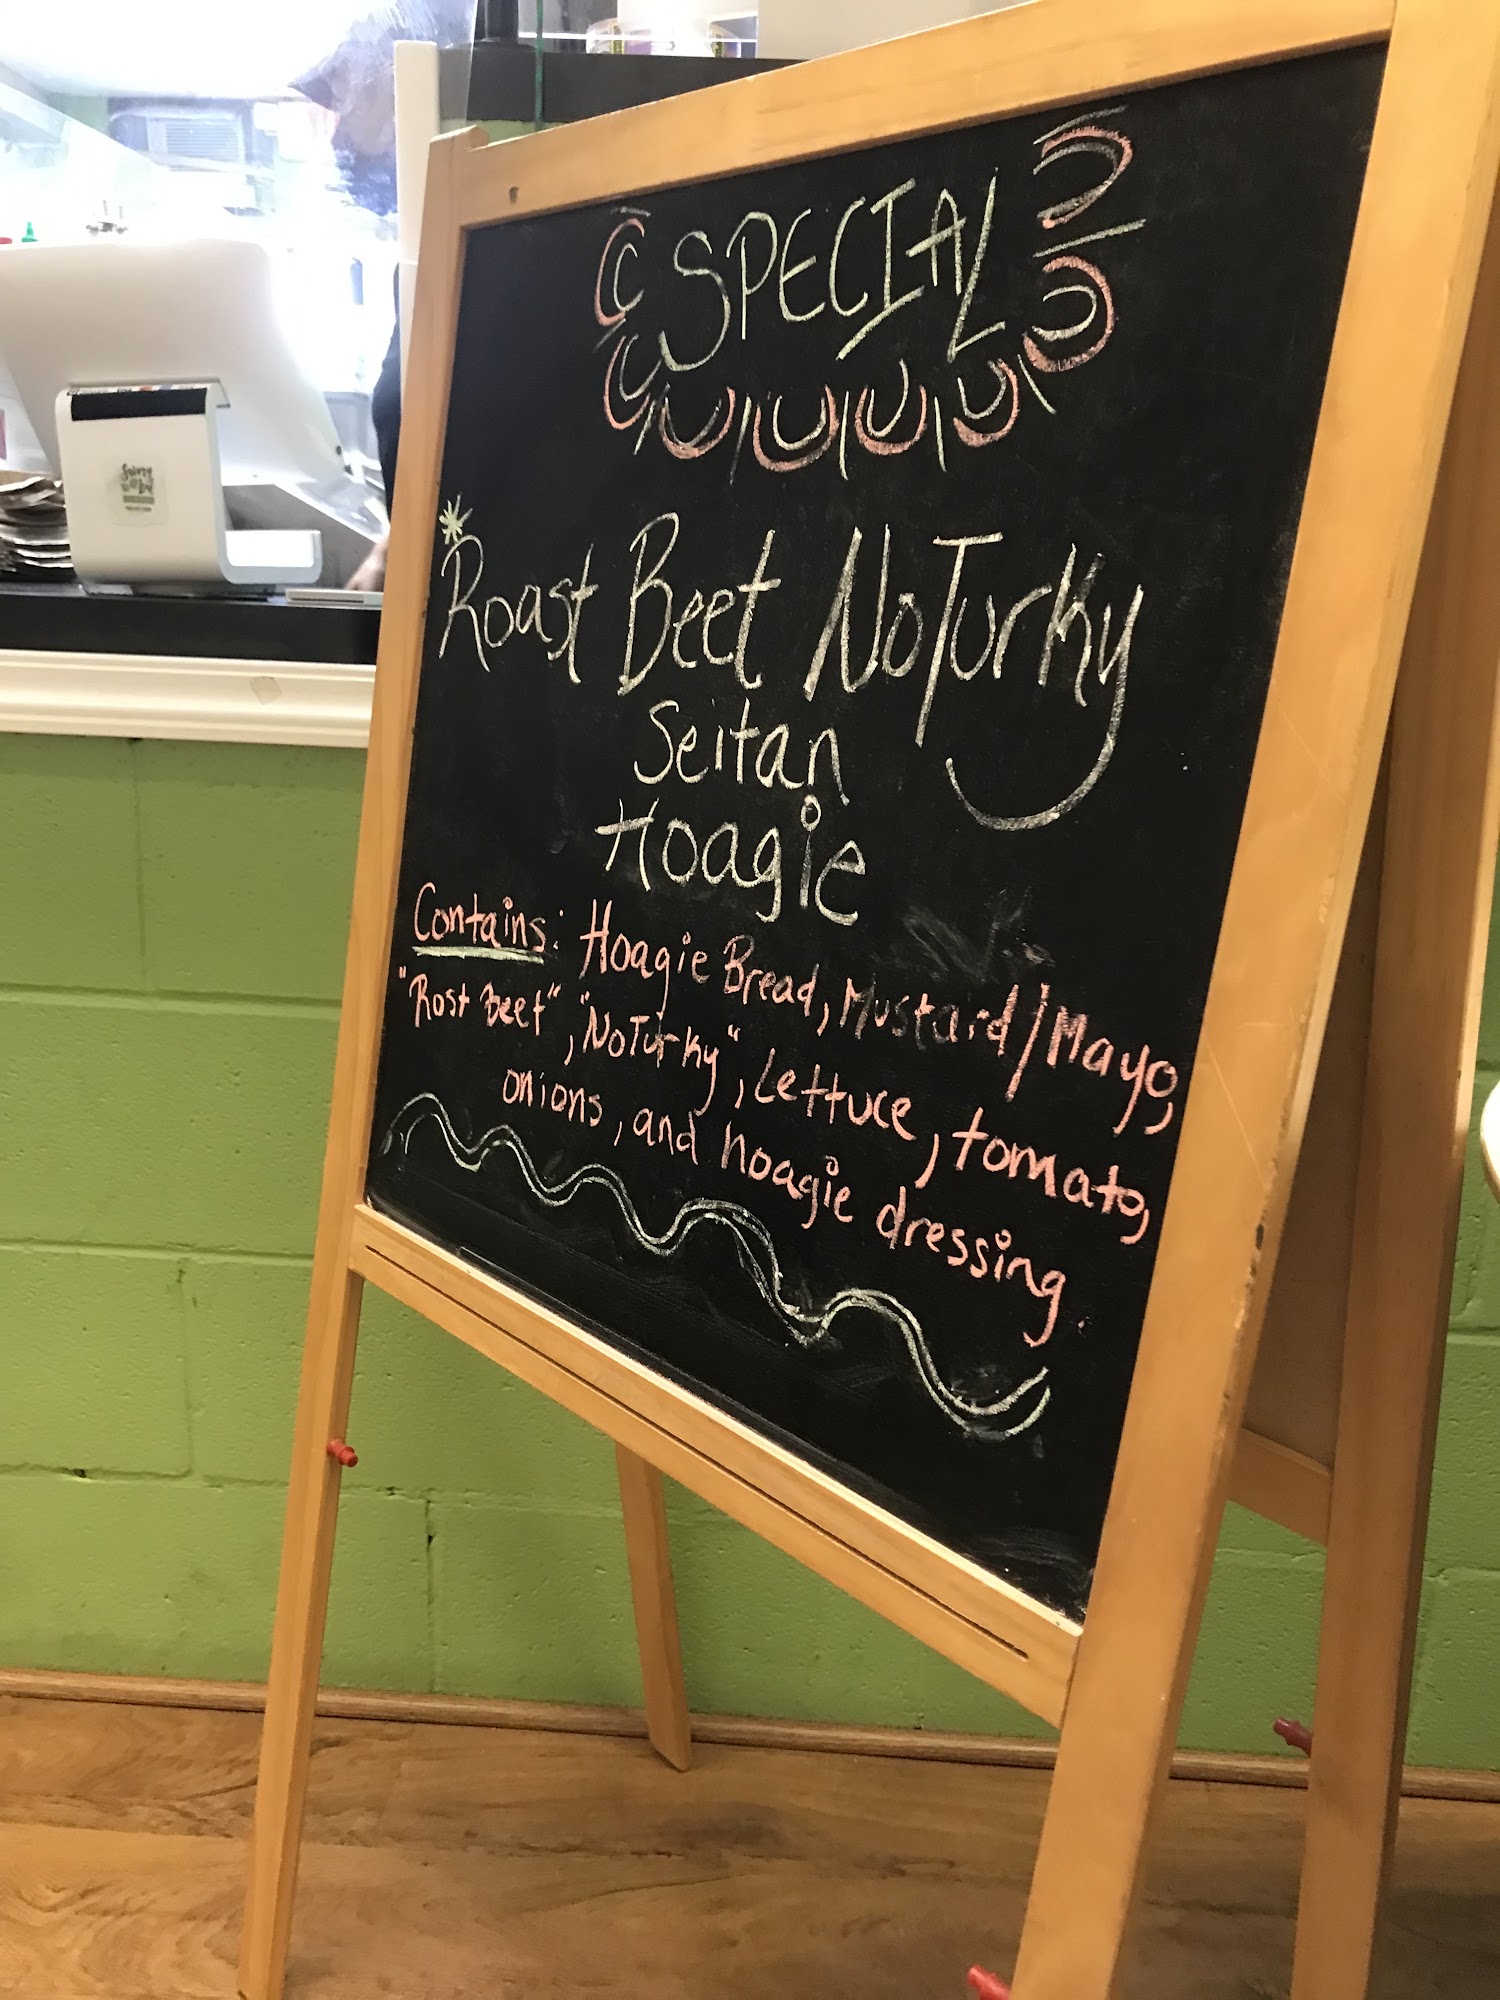 SPECIAL
*Roast Beet NoTurky
Seitan
Hoagie
Contains: Hoagie Bread, Mustard/Mayo,
"Rost Beet", "NoTurky", Lettuce, tomato,
onions, and hoagie dressing.